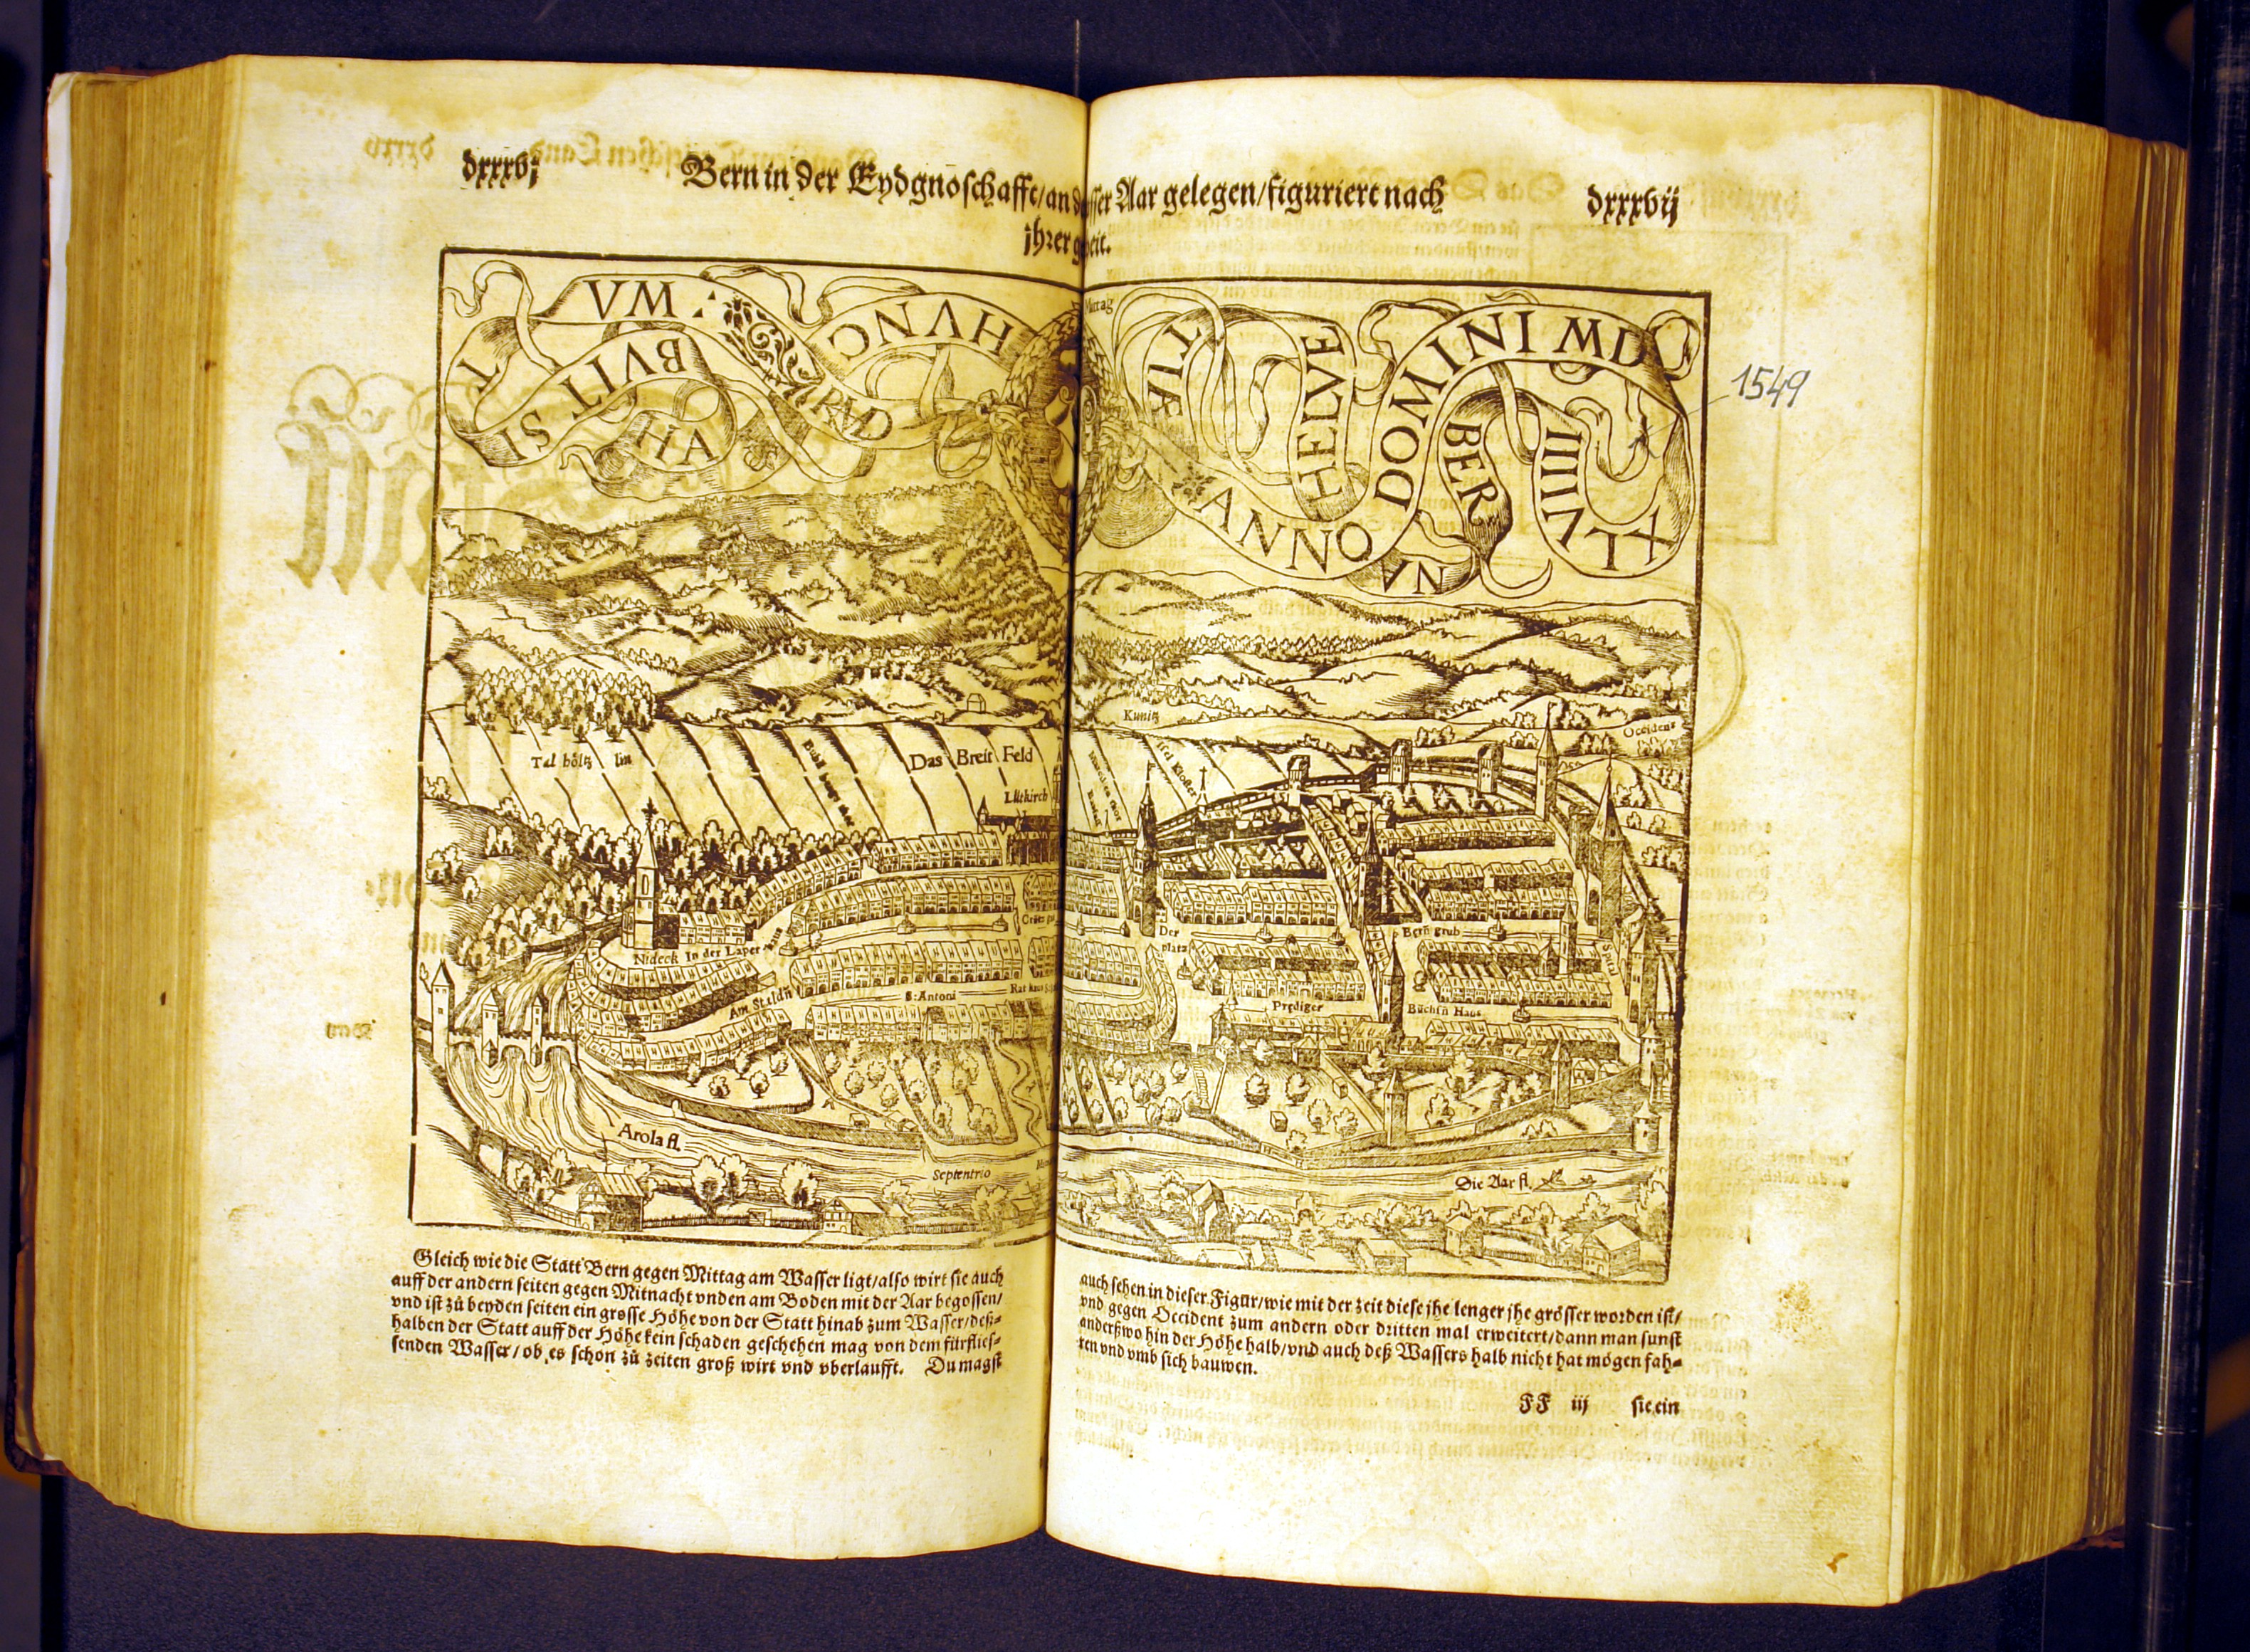 dxxxvj
Bern in der Eydgnoschafft/an der Aar gelegen/figuriert nach
dxxxvij
jhrer
WA
HVNC
SI T
BVIT
HA
Mittag
TIÆ
HELVE
ANNO DOMINI MD
XLVIIII
BER
NA
1549
Tal höltz lin
Das Breit Feld
Lütkirch
Kunitz
Occidens
Nideck
In der Laper
Am Staldn
S: Antoni
Rat haus
Der platz
Prediger
Büchsn Haus
Spital
Arola fl.
Septentrio
Die Aar fl.
Gleich wie die Statt Bern gegen Mittag am Wasser ligt/also wirt sie auch
auff der andern seiten gegen Mitnacht vnden am Boden mit der Aar begossen/
vnd ist zů beyden seiten ein grosse Höhe von der Statt hinab zum Wasser/deß-
halben der Statt auff der Höhe kein schaden geschehen mag von dem fürflies-
senden Wasser/ob es schon zů zeiten groß wirt vnd vberlaufft. Du magst
auch sehen in dieser Figur/wie mit der zeit diese jhe lenger jhe grösser worden ist/
vnd gegen Occident zum andern oder dritten mal erweitert/dann man sunst
anderßwo hin der Höhe halb/vnd auch deß Wassers halb nicht hat mögen fah-
ren vnd vmb sich bauwen.
FF iij
sie ein